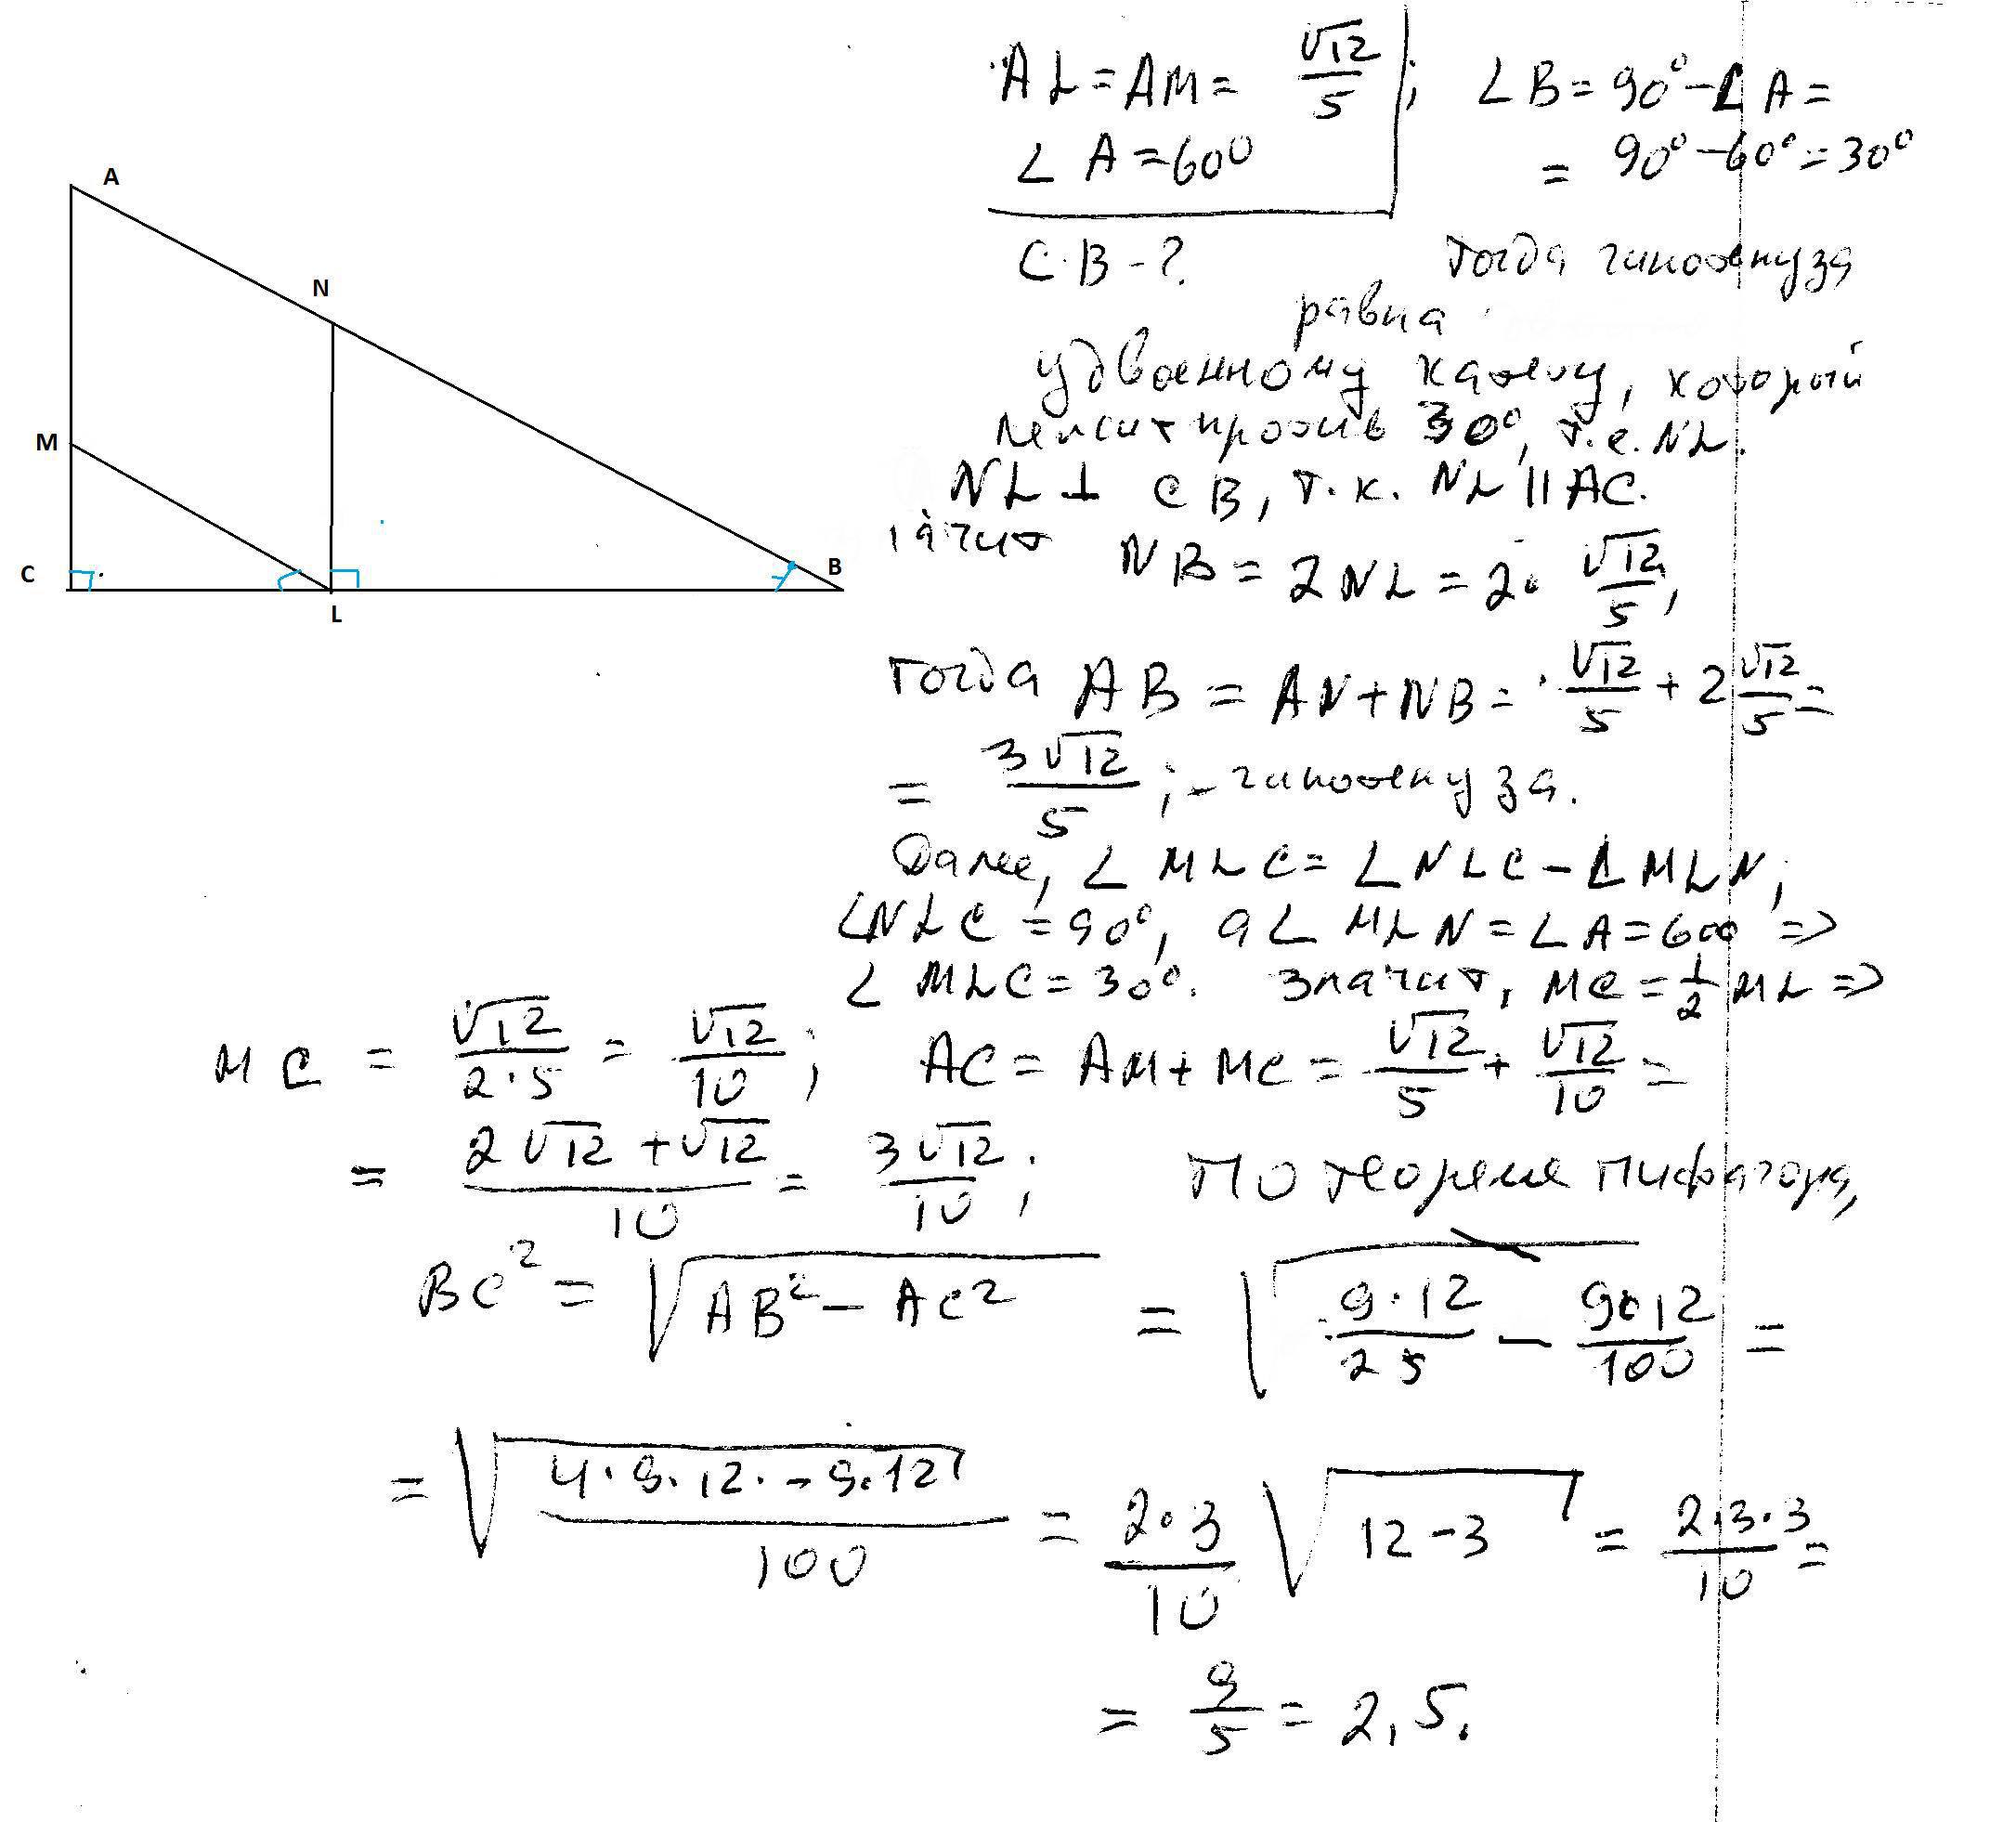 A
N
M
C
L
B
AL = AM = √12/5; ∠B = 90° - ∠A =
∠A = 60° = 90° - 60° = 30°
CB - ? Тогда гипотенуза
равна
удвоенному катету, который
лежит против 30°, т.е. NL.
NL ⊥ CB, т.к. NL || AC.
NB = 2NL = 2 · √12/5,
тогда AB = AN + NB = √12/5 + 2 √12/5 =
= 3√12/5; - гипотенуза.
Далее, ∠MLC = ∠NLC - ∠MLN;
∠NLC = 90°, а ∠MLN = ∠A = 60° =>
∠MLC = 30°. Значит, MC = 1/2 ML =>
MC = √12/(2·5) = √12/10; AC = AM + MC = √12/5 + √12/10 =
= (2√12 + √12)/10 = 3√12/10; По теореме Пифагора,
BC² = √(AB² - AC²) = √(9·12/25 - 9·12/100) =
= √((4·9·12 - 9·12)/100) = 2·3/10 √(12 - 3) = 2·3·3/10 =
= 9/5 = 2,5.